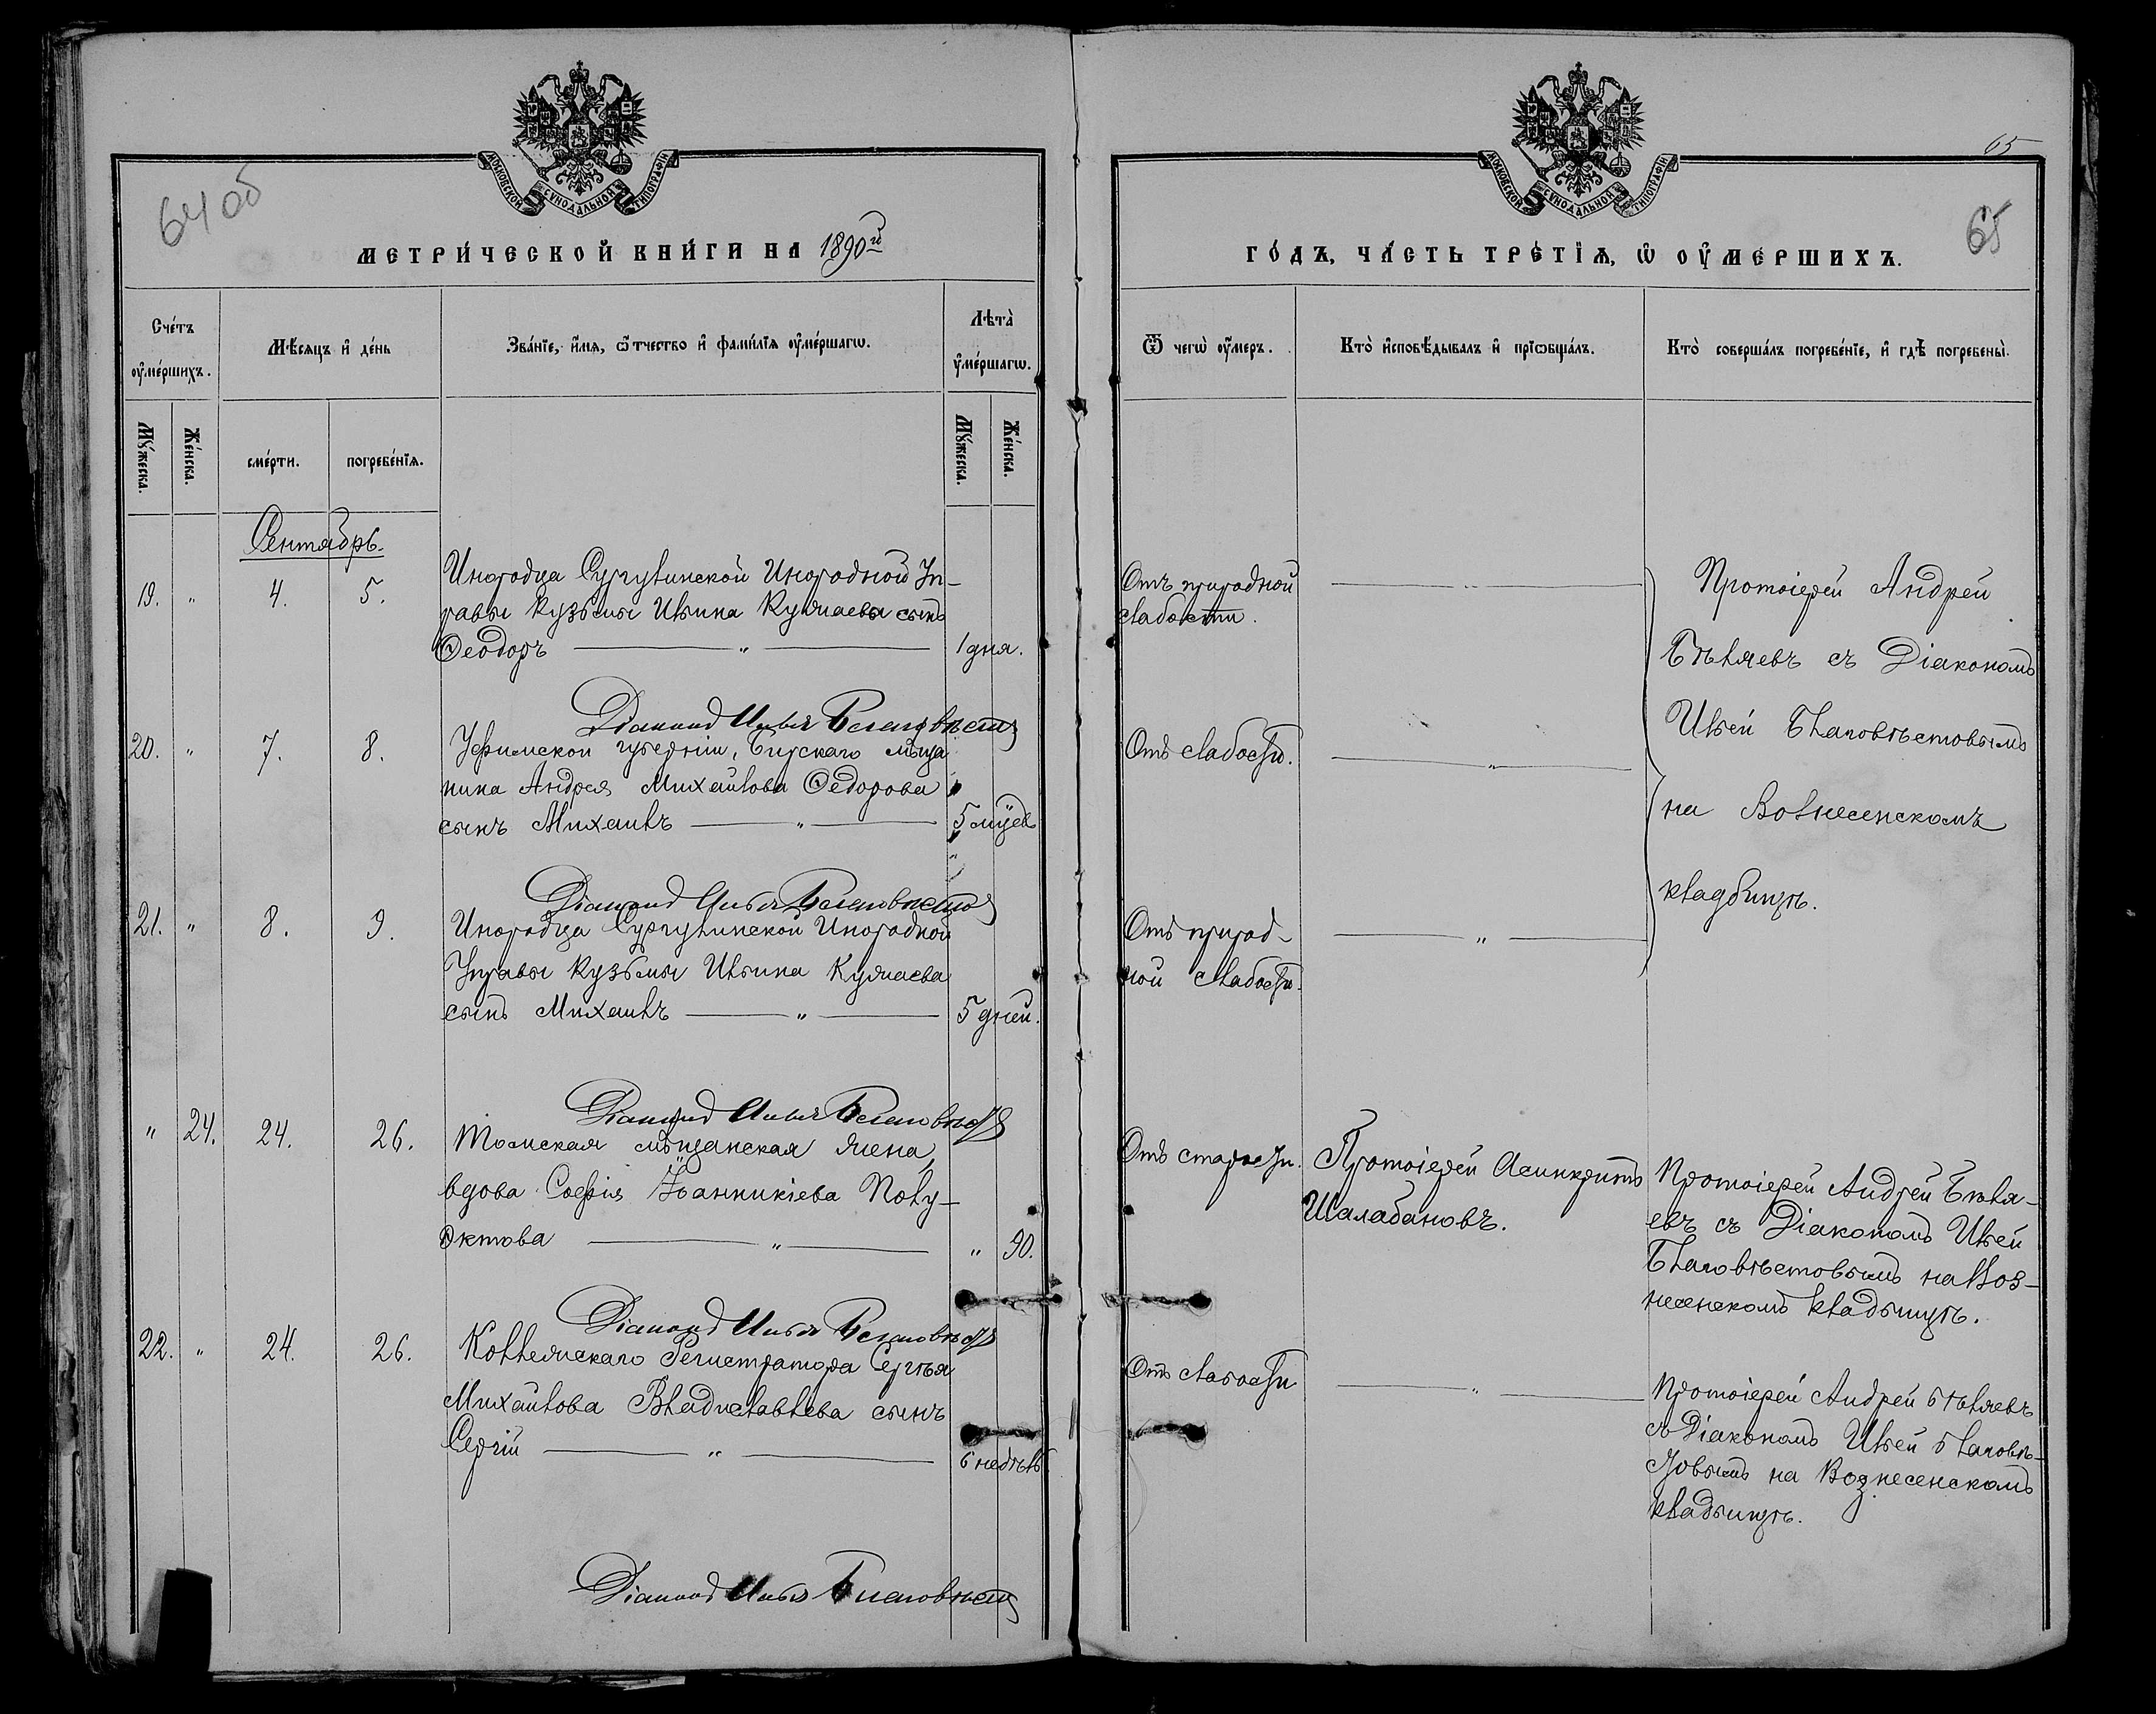 МОСКОВСКОЙ СУНОДАЛЬНОЙ ТИПОГРАФІИ
64 об
МЕТРИ́ЧЕСКОЙ КНИ́ГИ НА 1890й
Сче́тъ оумершихъ.
Мѣсяцъ и де́нь
Зва́ніе, и́мя, ѿтчество и фами́лія оуме́ршагω.
Лѣта̀ оуме́ршагω.
Му́жеска.
Же́нска.
сме́рти.
погребе́нія.
Му́жеска.
Же́нска.
Сентябрь.
19. " 4. 5.
Инородца Сургутинской Инородной Уп-
равы Кузьмы Ильина Кумаева сынъ
Ѳеодоръ — " — 1 дня.
Діаконъ Илья Благовѣстов
20. " 7. 8.
Уфимской губерніи, Бирскаго мѣща
нина Андрея Михайлова Ѳедорова
сынъ Михаилъ — " — 5 мцев
Діаконъ Илья Благовѣстов
21. " 8. 9.
Инородца Сургутинской Инородной
Управы Кузьмы Ильина Кумаева
сынъ Михаилъ — " — 5 дней.
Діаконъ Илья Благовѣстов
" 24. 24. 26.
Томская мѣщанская жена,
вдова Софія Іоанникіева Полу-
эктова — " — " 90.
Діаконъ Илья Благовѣстов
22. " 24. 26.
Коллежскаго Регистратора Сергѣя
Михайлова Владиславлева сынъ
Сергій — " — 6 недѣль
Діаконъ Илья Благовѣстов
МОСКОВСКОЙ СУНОДАЛЬНОЙ ТИПОГРАФІИ
65
65
ГО́ДЪ, ЧА́СТЬ ТРЕ́ТІѦ, Ѡ ОУМЕ́РШИХЪ.
Ѿ чегὼ оу́меръ.
Кто̀ исповѣ́дывалъ и пріωбща́лъ.
Кто̀ соверша́лъ погребе́ніе, и гдѣ̀ погребены̀.
Отъ природной
слабости.
Протоіерей Андрей
Бѣляевъ съ Діакономъ
Ильей Благовѣстовымъ
на Вознесенскомъ
кладбищѣ.
Отъ слабости. — " —
Отъ природ-
ной слабости. — " —
Отъ старости.
Протоіерей Асинкритъ
Шалабановъ.
Протоіерей Андрей Бѣля-
евъ съ Діакономъ Ильей
Благовѣстовымъ на Воз-
несенскомъ кладбищѣ.
Отъ слабости — " —
Протоіерей Андрей Бѣляевъ
съ Діакономъ Ильей Благовѣ-
стовымъ на Вознесенскомъ
кладбищѣ.